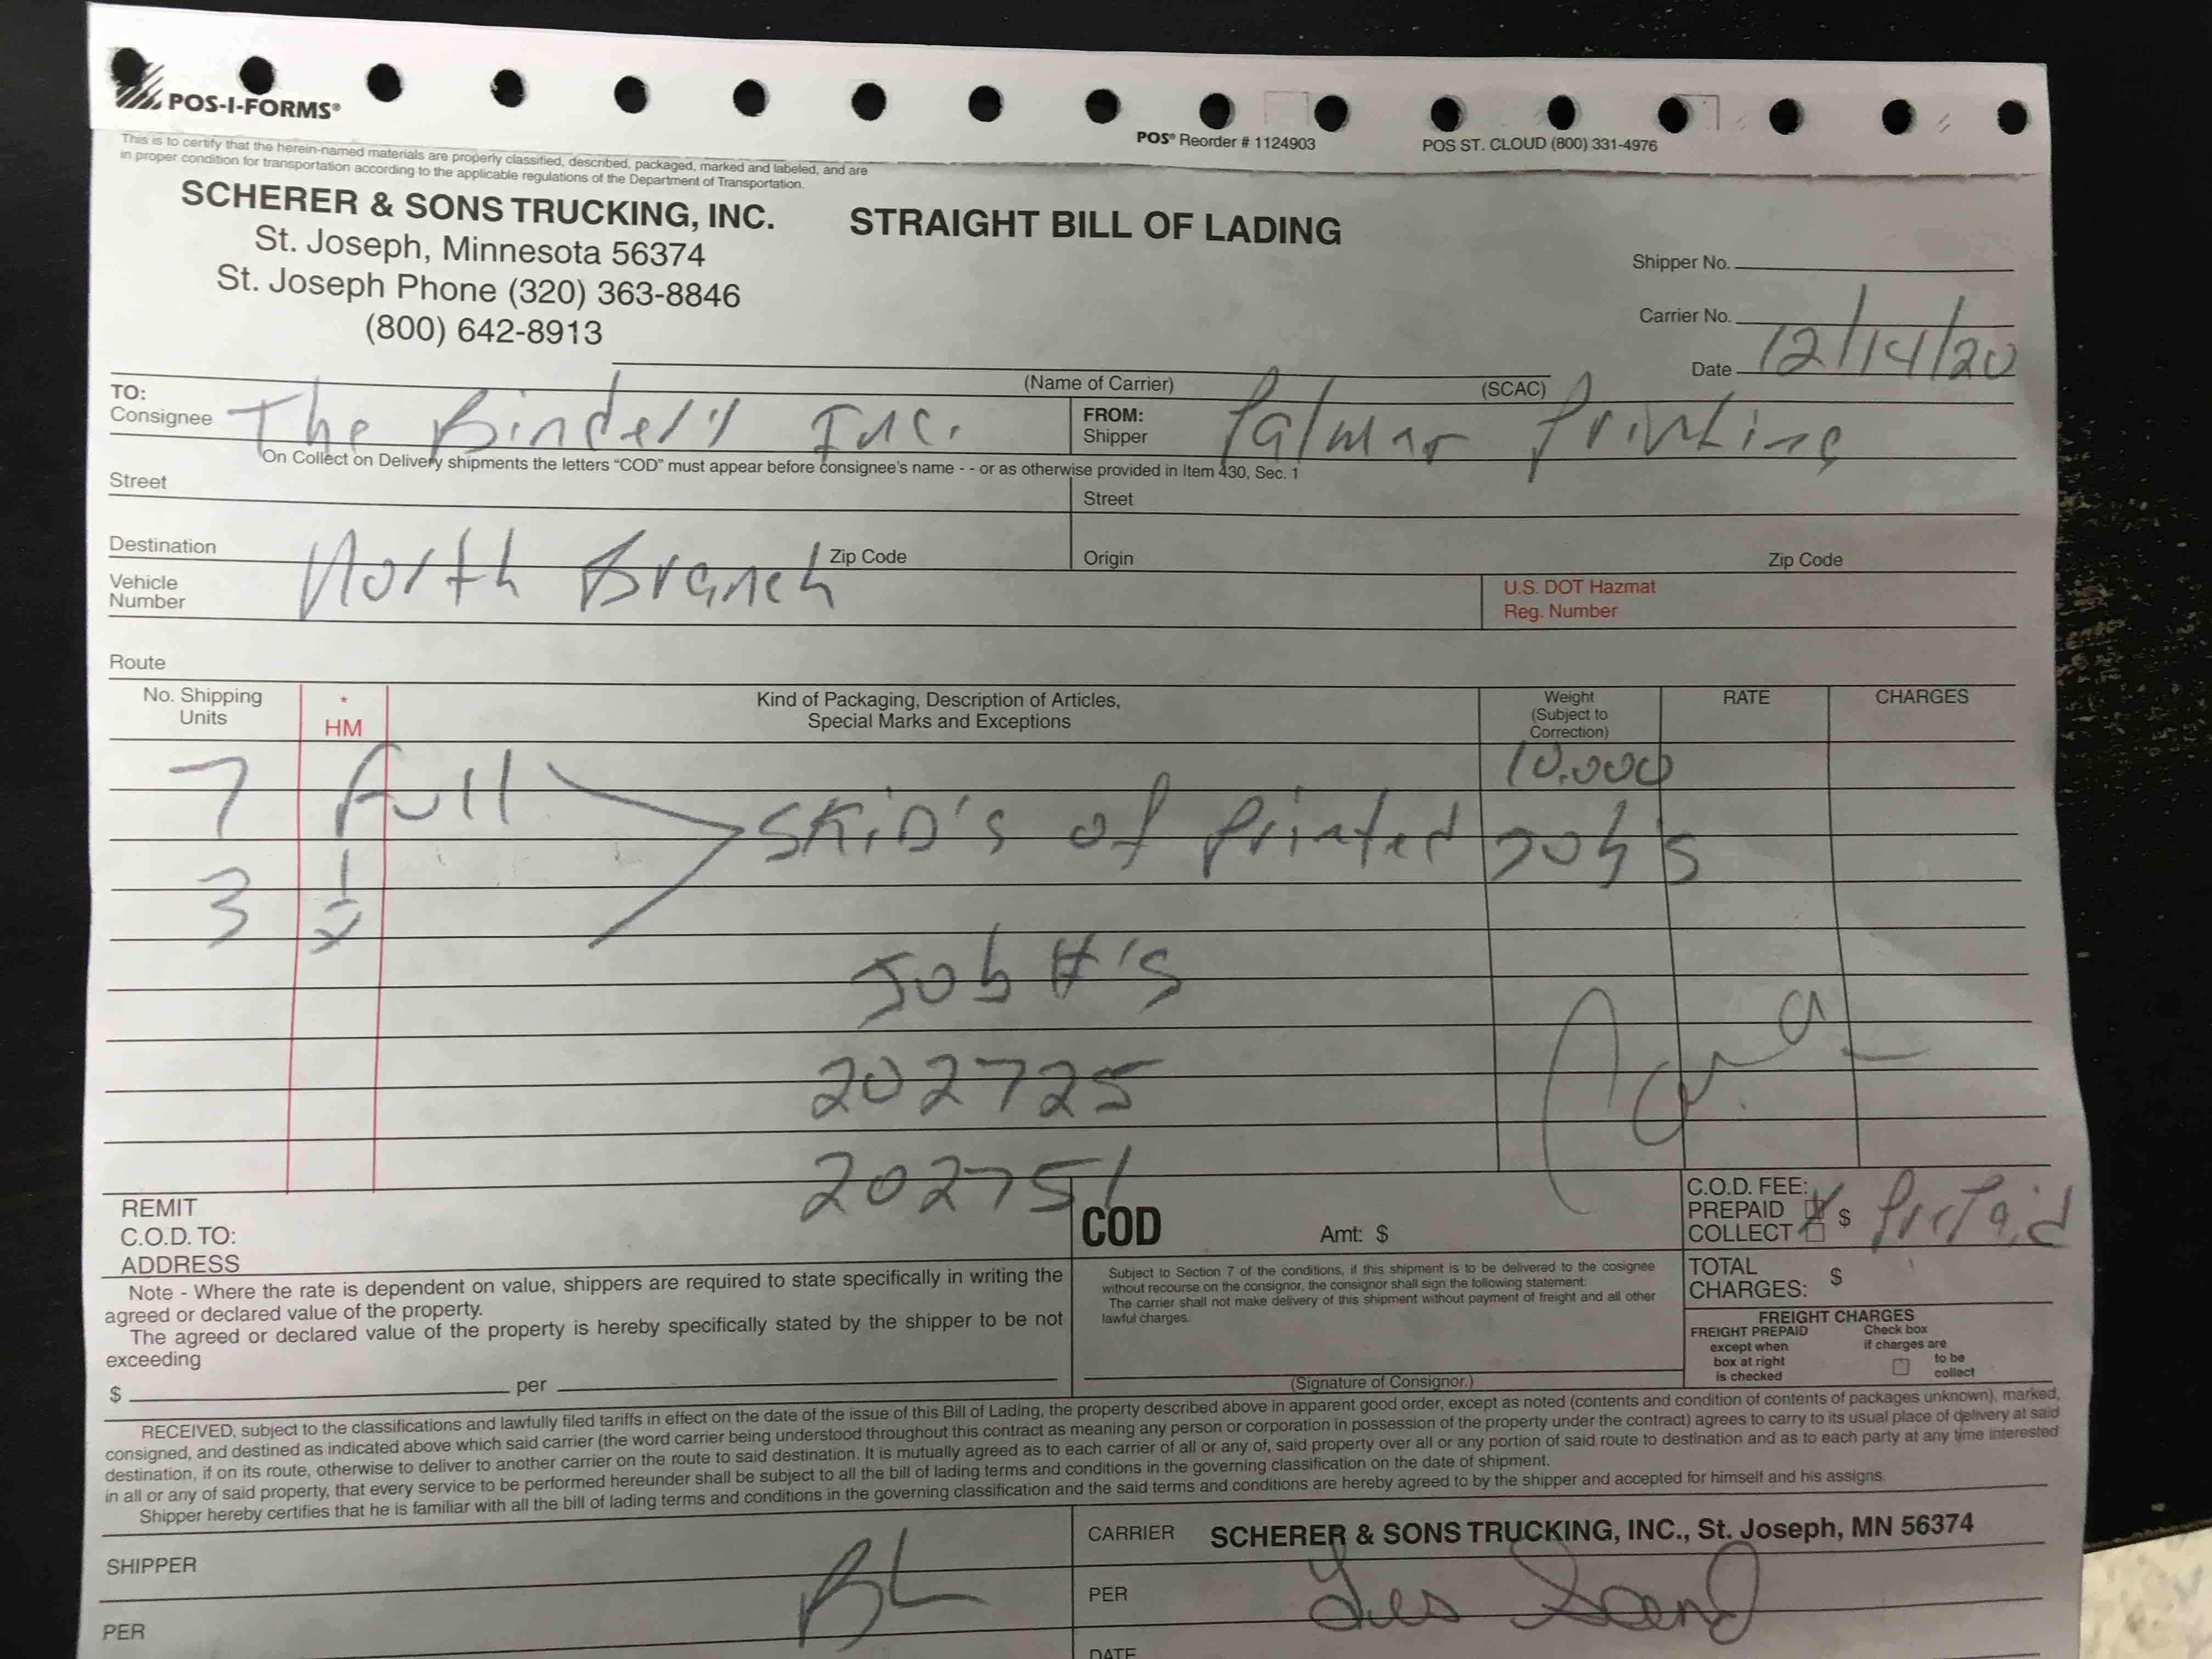 POS-I-FORMS®
POS® Reorder # 1124903
POS ST. CLOUD (800) 331-4976
This is to certify that the herein-named materials are properly classified, described, packaged, marked and labeled, and are
in proper condition for transportation according to the applicable regulations of the Department of Transportation.
SCHERER & SONS TRUCKING, INC.
St. Joseph, Minnesota 56374
St. Joseph Phone (320) 363-8846
(800) 642-8913
STRAIGHT BILL OF LADING
Shipper No.
Carrier No.
Date 12/14/20
(Name of Carrier) (SCAC)
TO:
Consignee The Bindery Inc.
FROM:
Shipper Palmar Printing
On Collect on Delivery shipments the letters “COD” must appear before consignee's name - - or as otherwise provided in Item 430, Sec. 1
Street
Street
Destination North Branch Zip Code
Origin Zip Code
Vehicle
Number
U.S. DOT Hazmat
Reg. Number
Route
No. Shipping
Units
*
HM
Kind of Packaging, Description of Articles,
Special Marks and Exceptions
Weight
(Subject to
Correction)
RATE
CHARGES
7 full 10,000
SKiD's of Printed Job's
3 1/2
Job #'s
202725
202751
REMIT
C.O.D. TO:
ADDRESS
COD Amt: $
C.O.D. FEE:
PREPAID
COLLECT
$ PrePaid
Note - Where the rate is dependent on value, shippers are required to state specifically in writing the
agreed or declared value of the property.
The agreed or declared value of the property is hereby specifically stated by the shipper to be not
exceeding
$ per
Subject to Section 7 of the conditions, if this shipment is to be delivered to the cosignee
without recourse on the consignor, the consignor shall sign the following statement:
The carrier shall not make delivery of this shipment without payment of freight and all other
lawful charges.
(Signature of Consignor.)
TOTAL
CHARGES: $
FREIGHT CHARGES
FREIGHT PREPAID
except when
box at right
is checked
Check box
if charges are
to be
collect
RECEIVED, subject to the classifications and lawfully filed tariffs in effect on the date of the issue of this Bill of Lading, the property described above in apparent good order, except as noted (contents and condition of contents of packages unknown), marked,
consigned, and destined as indicated above which said carrier (the word carrier being understood throughout this contract as meaning any person or corporation in possession of the property under the contract) agrees to carry to its usual place of delivery at said
destination, if on its route, otherwise to deliver to another carrier on the route to said destination. It is mutually agreed as to each carrier of all or any of, said property over all or any portion of said route to destination and as to each party at any time interested
in all or any of said property, that every service to be performed hereunder shall be subject to all the bill of lading terms and conditions in the governing classification on the date of shipment.
Shipper hereby certifies that he is familiar with all the bill of lading terms and conditions in the governing classification and the said terms and conditions are hereby agreed to by the shipper and accepted for himself and his assigns.
SHIPPER
PER BL
CARRIER SCHERER & SONS TRUCKING, INC., St. Joseph, MN 56374
PER Les
DATE